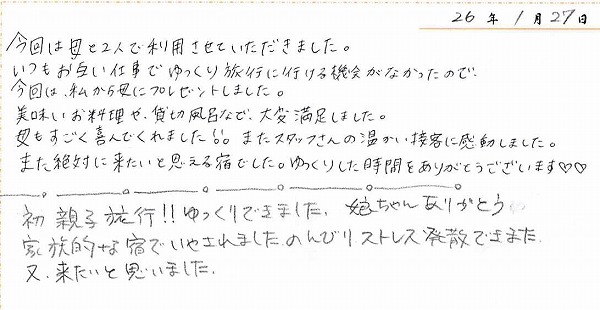 26年 1月27日
今回は母と2人で利用させていただきました。
いつもお互い仕事でゆっくり旅行に行ける機会がなかったので、
今回は、私から母にプレゼントしました。
美味いお料理や、貸切風呂など、大変満足しました。
母もすごく喜んでくれました!! またスタッフさんの温かい接客に感動しました。
また絶対に来たいと思える宿でした。ゆっくりした時間をありがとうございます♡♡
初 親子旅行!! ゆっくりできました、 娘ちゃんありがとう
家族的な宿でいやされました、のんびりストレス発散できまた、
又、来たいと思いました、